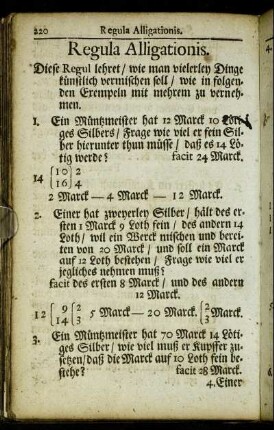 220 Regula Alligationis.
Regula Alligationis.
Diese Regul lehret / wie man vielerley Dinge
künstlich vermischen soll / wie in folgen-
den Exempeln mit mehrem zu verneh-
men.
1. Ein Müntzmeister hat 12 Marck 10 Löti-
ges Silbers / Frage wie viel er fein Sil-
ber hierunter thun müsse / daß es 14 Lö-
tig werde? facit 24 Marck.
14 { 10 | 2
16 | 4
2 Marck — 4 Marck — 12 Marck.
2. Einer hat zweyerley Silber / hält des er-
sten 1 Marck 9 Loth fein / des andern 14
Loth / wil ein Werck mischen und berei-
ten von 20 Marck / und soll ein Marck
auf 12 Loth bestehen / Frage wie viel er
jegliches nehmen muß?
facit des ersten 8 Marck / und des andern
12 Marck.
12 { 9 | 2 5 Marck — 20 Marck. { 2 Marck.
14 | 3 3
3. Ein Müntzmeister hat 70 Marck 14 Löti-
ges Silber / wie viel muß er Kupffer zu-
setzen / daß die Marck auf 10 Loth fein be-
stehe? facit 28 Marck.
4. Einer